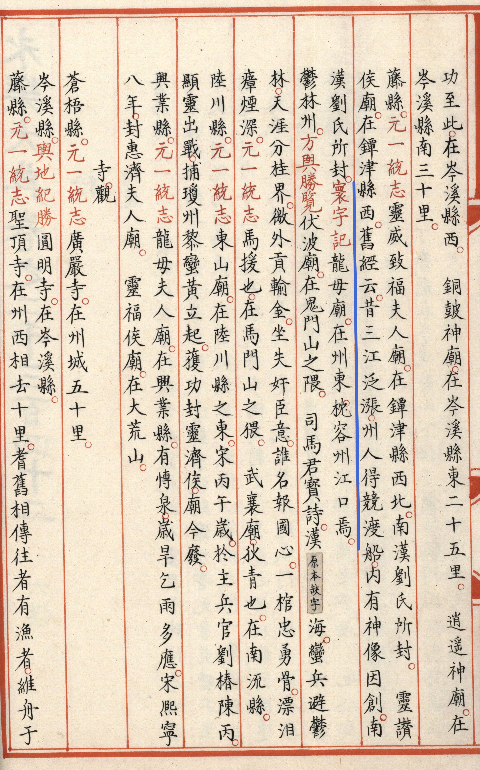 功至此在岑溪縣西 銅皷神廟在岑溪縣東二十五里 逍遥神廟在
岑溪縣南三十里
藤縣元一統志靈威致福夫人廟在鐔津縣西北南漢劉氏所封 靈讚
侯廟在鐔津縣西舊經云昔三江泛漲州人得競渡船内有神像因創南
漢劉氏所封寰宇記龍母廟在州東枕容州江口焉
鬱林州方輿勝覽伏波廟在鬼門山之隈 司馬君實詩漢原本缺字海蠻兵避鬱
林天涯分柱界徼外貢輸金坐失奸臣意誰名報國心一棺忠勇骨漂泪
瘴煙深元一統志馬援也在馬門山之隈 武襄廟狄青也在南流縣
陸川縣元一統志東山廟在陸川縣之東宋丙午歲於主兵官劉椿陳丙
顯靈出戰捕瓊州黎蠻黃立起獲功封靈濟侯廟今廢
興業縣元一統志龍母夫人廟在興業縣有愽泉歲旱乞雨多應宋熙寧
八年封惠濟夫人廟 靈福侯廟在大荒山
寺觀
蒼梧縣元一統志廣嚴寺在州城五十里
岑溪縣輿地紀勝圓明寺在岑溪縣
藤縣元一統志聖頂寺在州西相去十里耆舊相傳往者有漁者維舟于